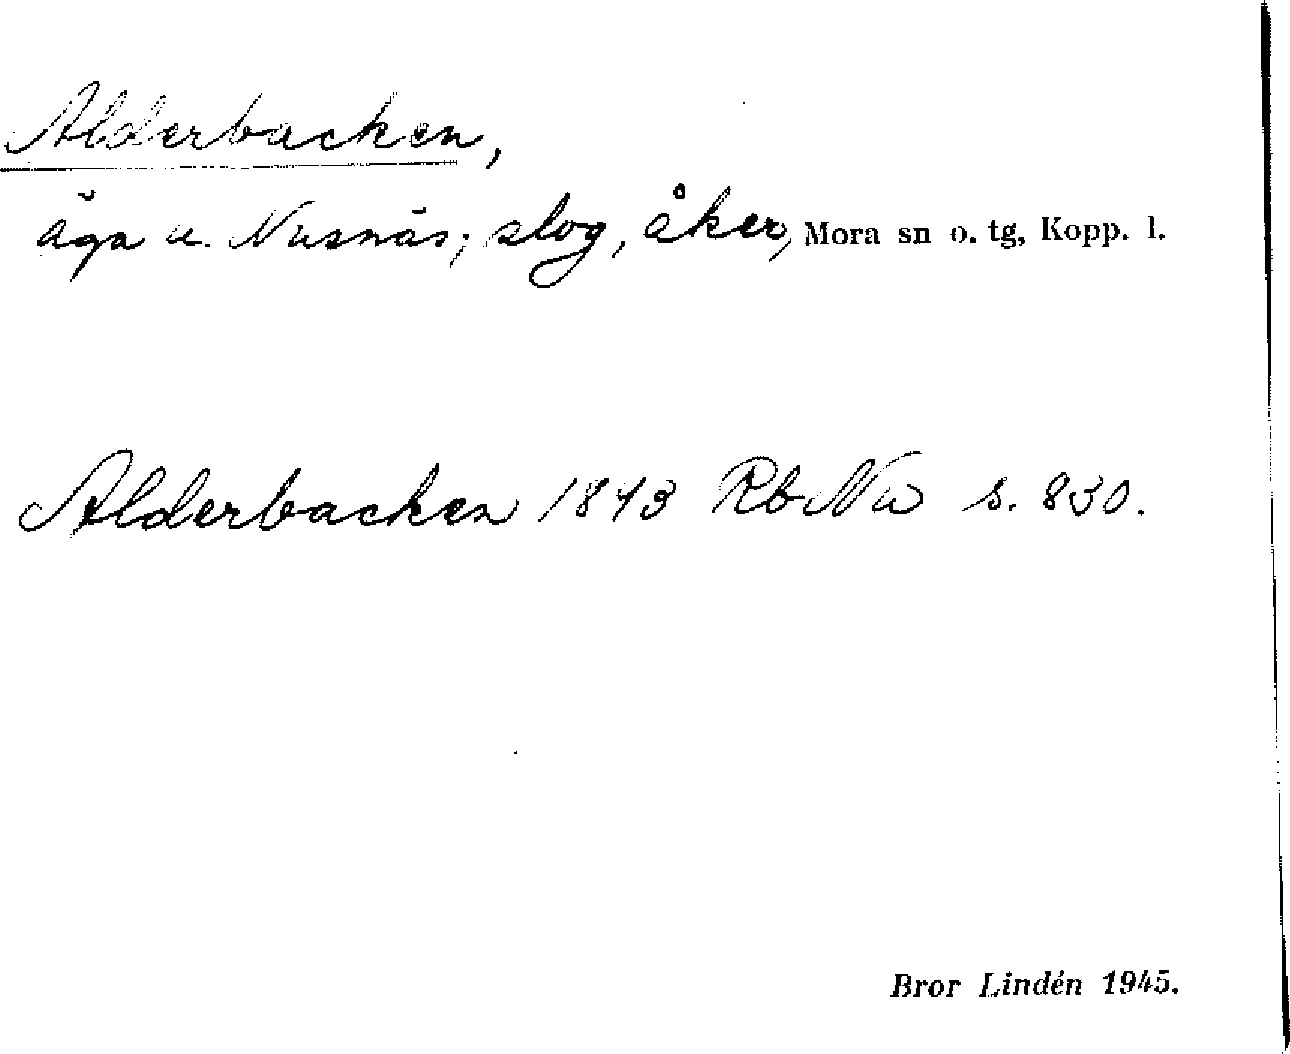 Alderbacken,
äga u. Nusnäs; slog, åker, Mora sn o. tg, Kopp. l.
Alderbacken 1843 Rb Nu s. 830.
Bror Lindén 1945.